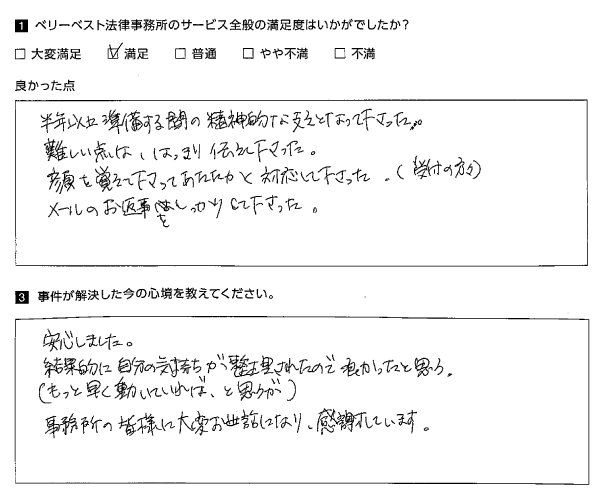 1 ベリーベスト法律事務所のサービス全般の満足度はいかがでしたか?
□ 大変満足 ☑ 満足 □ 普通 □ やや不満 □ 不満
良かった点
半年以上準備する間の精神的な支えとなって下さった。
難しい点は、はっきり伝えて下さった。
顔を覚えて下さってあたたかく対応して下さった。(受付の方々)
メールのお返事をしっかりして下さった。
3 事件が解決した今の心境を教えてください。
安心しました。
結果的に自分の気持ちが整理されたので良かったと思う。
(もっと早く動いていれば、と思うが)
事務所の皆様に大変お世話になり、感謝しています。